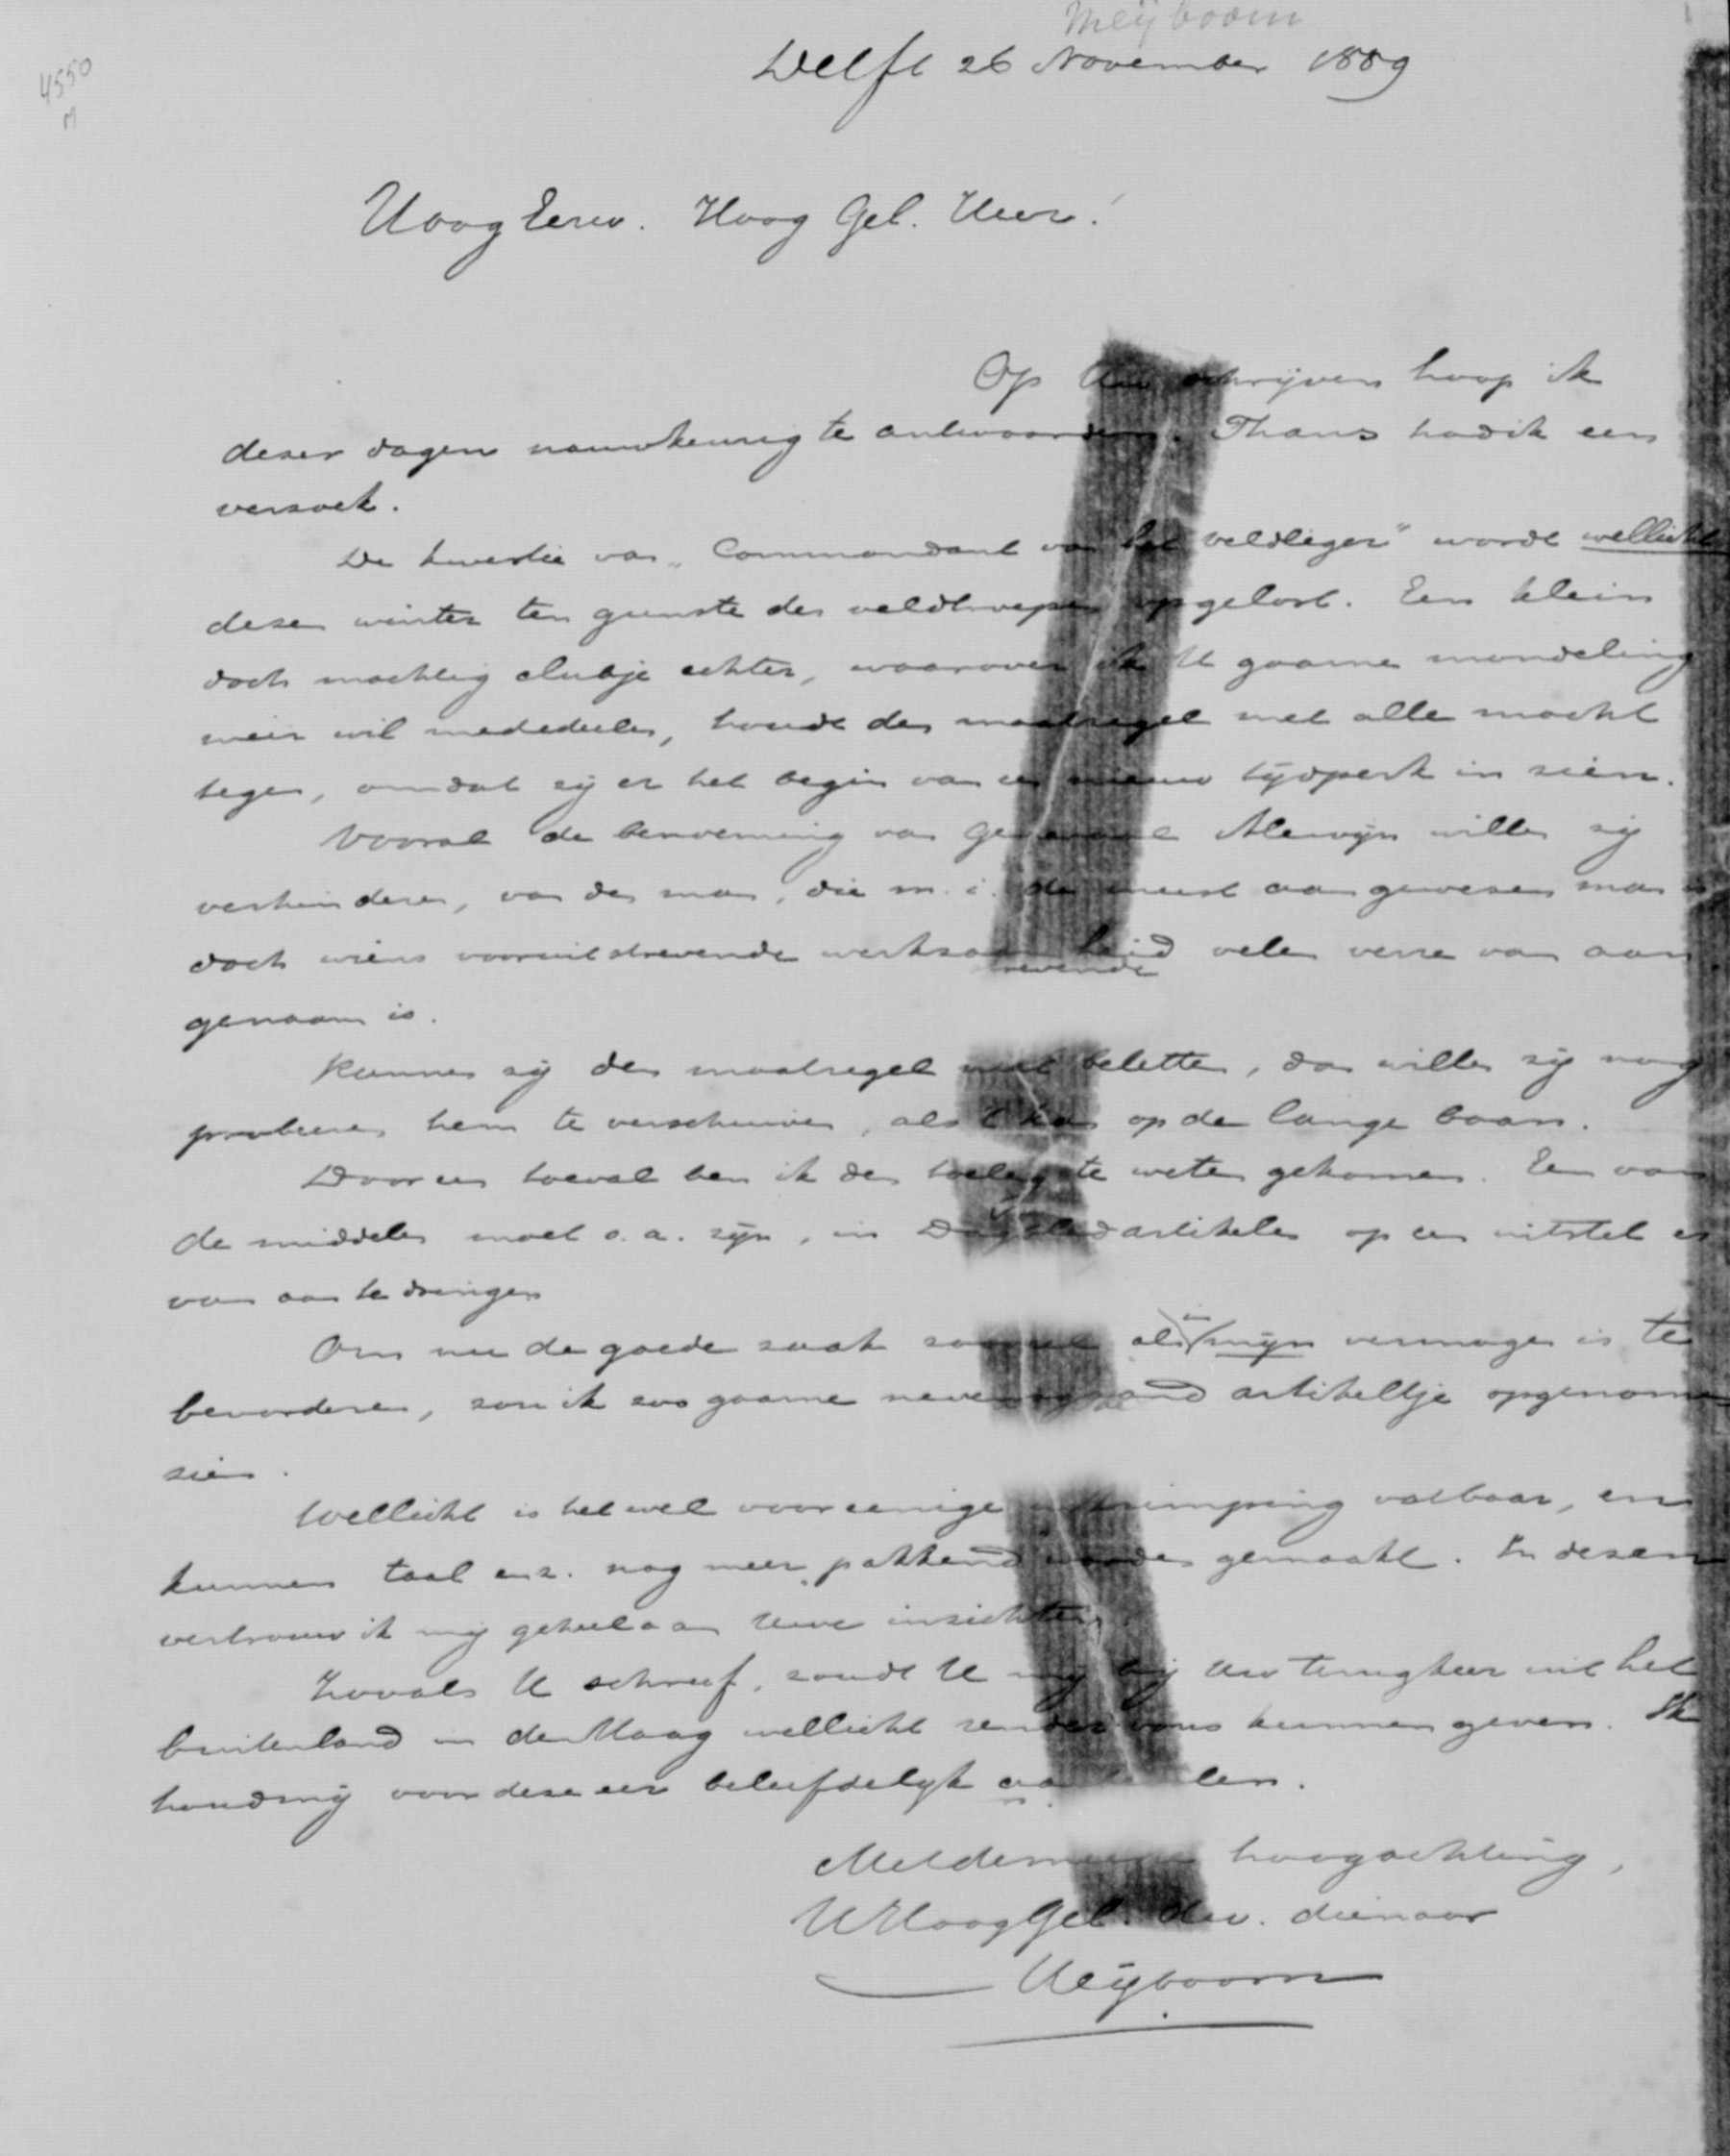 Meijboom
4550
M
Delft 26 November 1889
HoogEerw. Hoog Gel. Heer!
Op Uw schrijven hoop ik
dezer dagen nauwkeurig te antwoorden. Thans had ik een
verzoek.
De kwestie van "Commandant van het veldleger" wordt wellicht
dezen winter ten gunste der veldtroepen opgelost. Een klein
doch machtig clubje echter, waarover ik U gaarne mondeling
meer wil mededeelen, houdt den maatregel met alle macht
tegen, omdat zij er het begin van een nieuw tijdperk in zien.
Vooral de benoeming van Generaal Alewijn willen zij
verhinderen, van den man, die m.i. de meest aangewezen man is
doch wiens vooruitstrevende werkzaamheid velen verre van aan
strevende
genaam is.
Kunnen zij den maatregel niet beletten, dan willen zij nog
probeeren hem te verschuiven, als 't kan op de lange baan.
Door een toeval ben ik den toeleg te weten gekomen. Een van
de middelen moet o.a. zijn, in Dagbladartikelen op een uitstel er
van aan te dringen
Om nu de goede zaak zooveel als in mijn vermogen is te
bevorderen, zou ik zoo gaarne nevensgaand artikeltje opgenomen
zien.
Wellicht is het wel voor eenige inkrimping vatbaar, en
kunnen taal enz. nog meer pakkend worden gemaakt. In dezen
vertrouw ik mij geheel aan Uwe inzichten.
Zooals U schreef, zoudt U mij bij Uw terugkeer uit het
buitenland in den Haag wellicht rendez-vous kunnen geven. Ik
houd mij voor deze eer beleefdelijk aanbevolen.
Met de meeste hoogachting,
UHoogGel. dw. dienaar
Meijboom